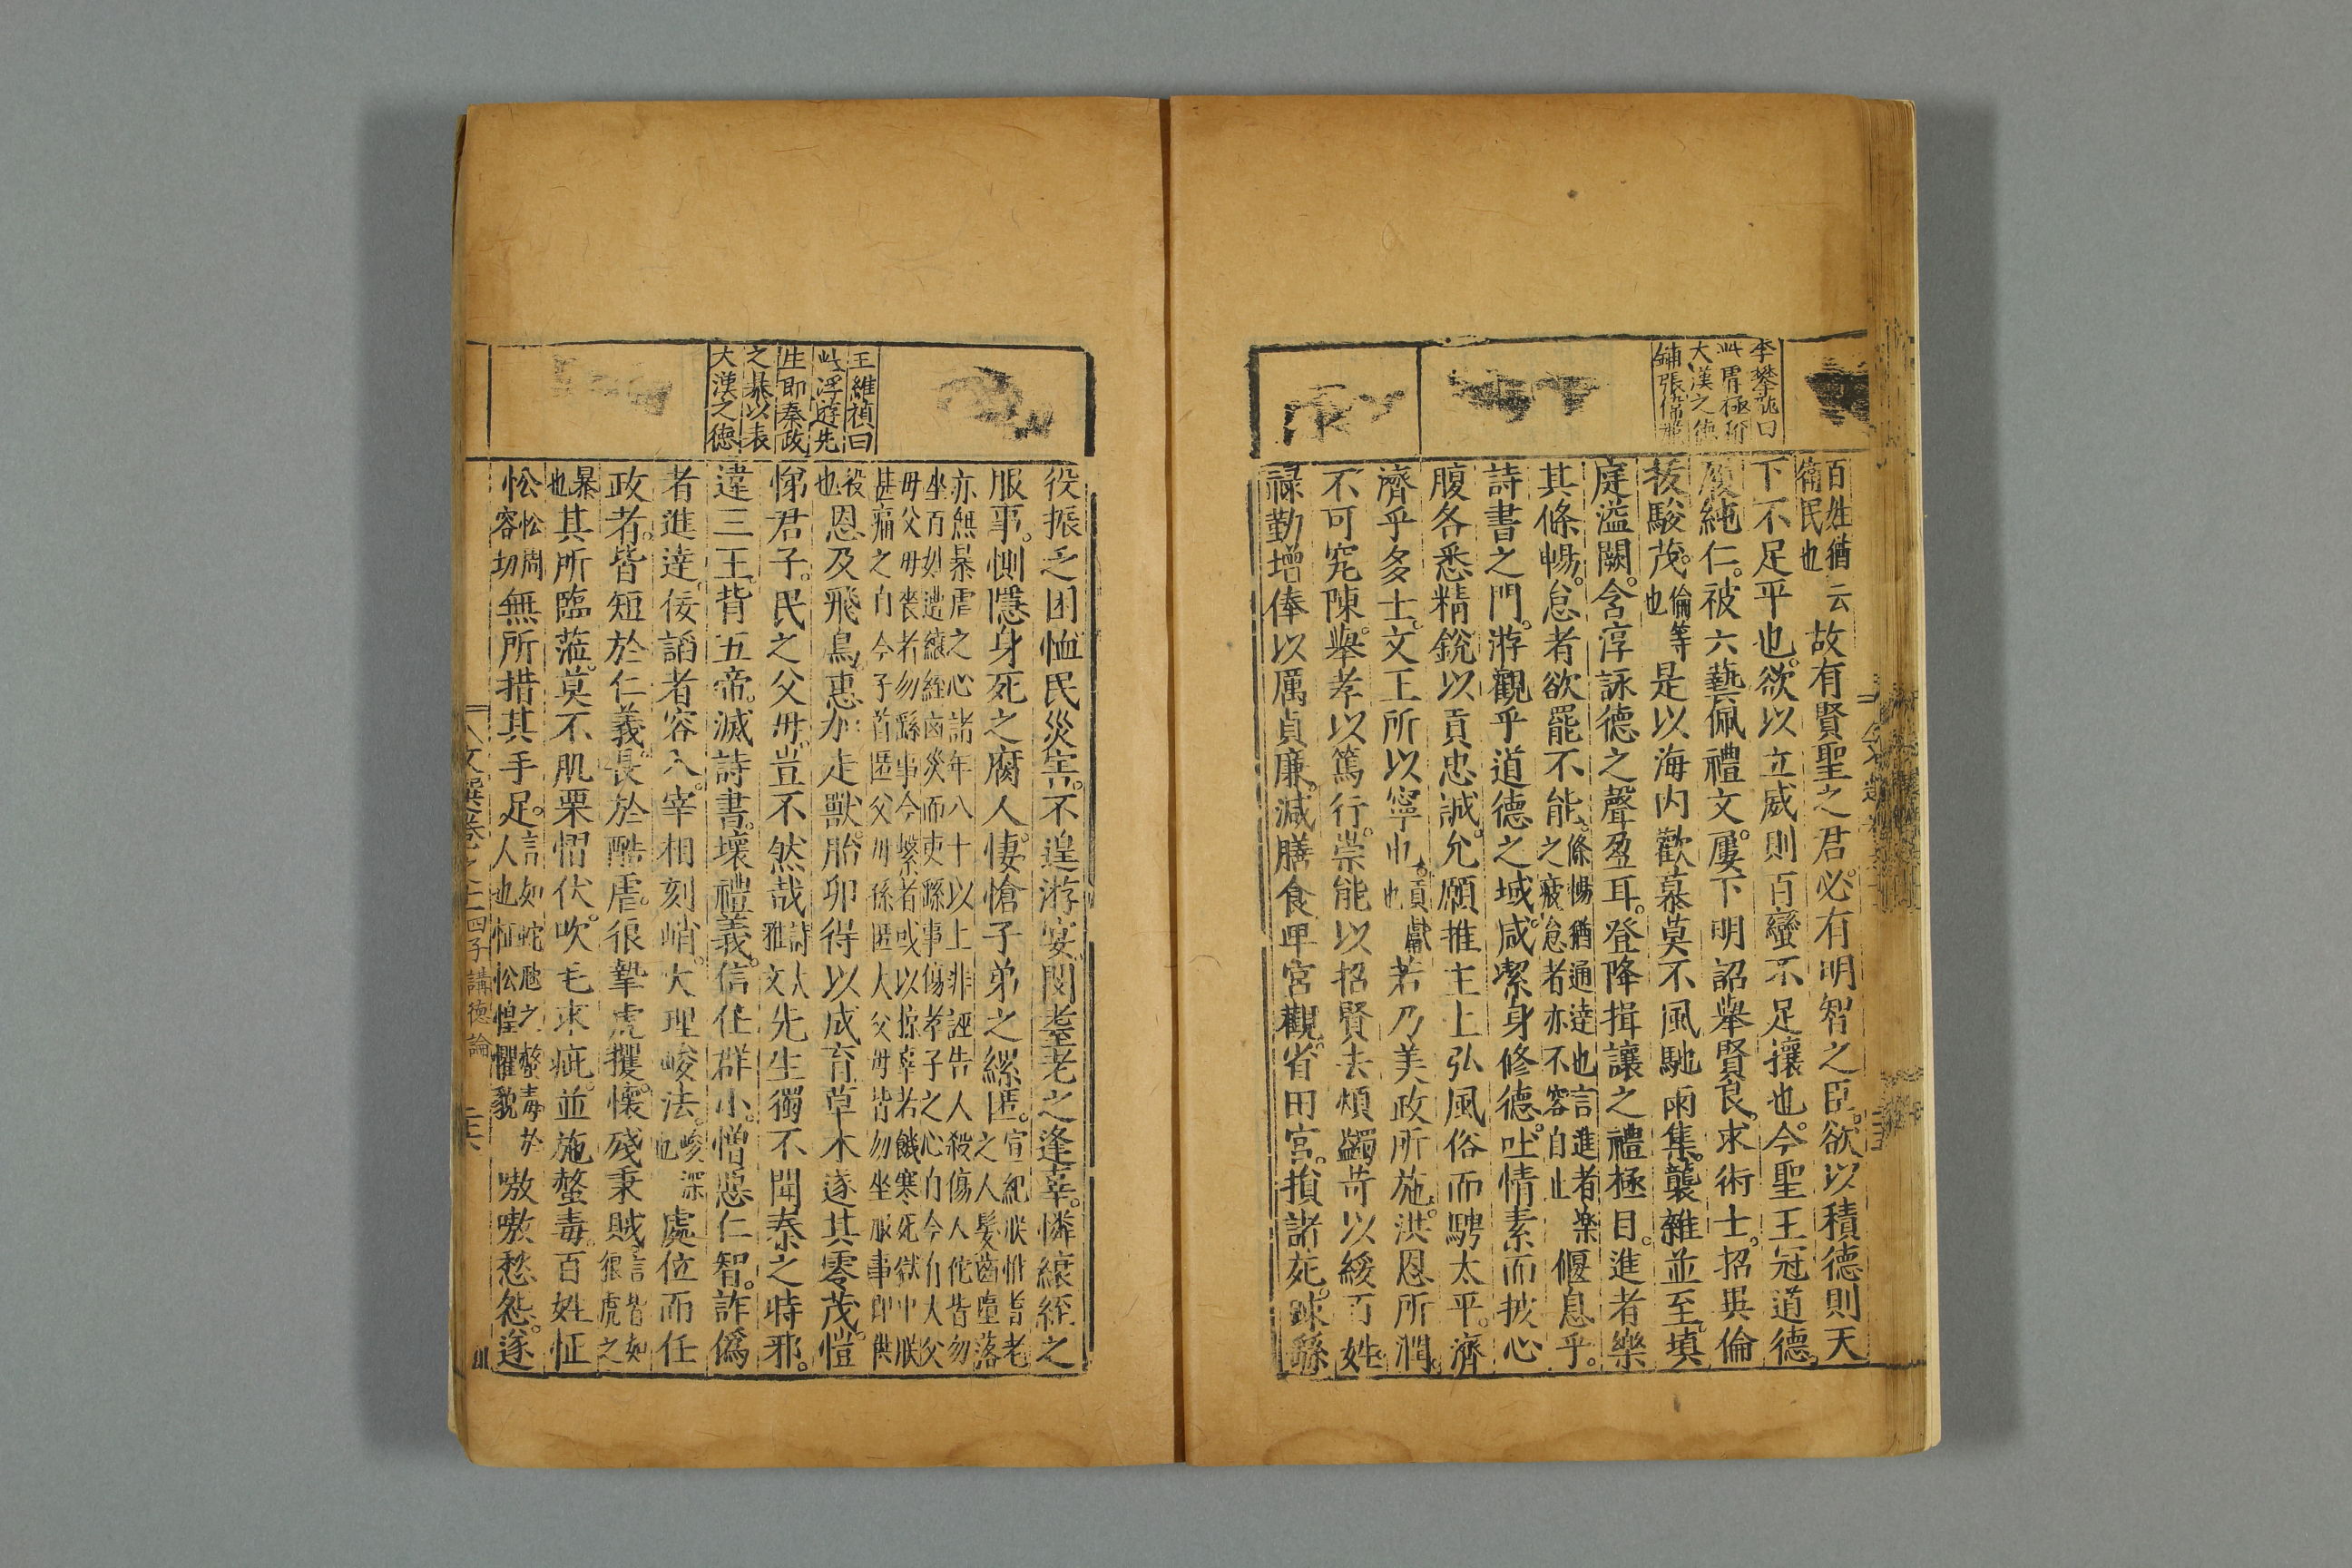 李攀龍曰
此胃極所
大漢之德
鋪張
百姓猶云
衛民也
故有賢聖之君。必有明智之臣。欲以積德則天
下不足平也。欲以立威則百蠻不足攘也。今聖王冠道德。
履純仁。被六藝佩禮文。屢下明詔舉賢良。求術士。招異倫
拔駿茂。
倫等
也
是以海内歡慕莫不風馳雨集。襲雜並至。填
庭溢闕。含淳詠德之聲盈耳。登降揖讓之禮極目。進者樂
其條暢。怠者欲罷不能。
條暢猶通達也言進者樂
之疲怠者亦不容自止
偃息乎。
詩書之門。游觀乎道德之域。咸潔身修德。吐情素而披心
腹各悉精銳以貢忠誠。允願推主上弘風俗而騁太平。濟
濟乎多士。文王所以寧也。
貢獻
也
若乃美政所施。洪恩所潤。
不可究陳。舉孝以篤行。崇能以招賢去煩蠲苛以綏百姓。
祿勤增俸以厲貞廉。減膳食卑宮觀。省田宮。損諸苑。踈繇
役振乏困恤民災害。不遑游宴。閔耄老之逢辜。憐縗絰之
服事。惻隱身死之腐人。悽愴子弟之縲匿。
宣紀朕惟耆老
之人髮齒墮落
亦無暴虐之心諸年八十以上非誣告人殺傷人佗皆勿
坐百姓遭縗絰凶災而吏繇事傷孝子之心自今有大父
毋父毋喪者勿繇事今繫者或以掠辜若饑寒死獄中朕
甚痛之自今子首匿父毋孫匿大父毋皆勿坐服事即供
役
也
恩及飛鳥。惠加走獸。胎卵得以成育草木遂其零茂。愷
悌君子。民之父毋。豈不然哉
詩大
雅文
先生獨不聞秦之時邪。
違三王。背五帝。滅詩書。壞禮義。信任群小。憎惡仁智。詐偽
者進達。佞謟者容入。宰相刻峭。大理峻法。
峻深
也
處位而任
政者。皆短於仁義。長於酷虐。很摯虎攫。懷殘秉賊。
言皆如
狼虎之
暴
也
其所臨蒞。莫不肌栗慴伏。吹毛求疵。並施螫毒。百姓怔
松
松周
容切
無所措其手足。
言如蛇虺之螫毒於
人也怔忪惶懼貌
嗷嗷愁怨。遂
王維禎曰
此浮遊先
生即秦政
之暴以表
大漢之德
文選卷之
四子講德論